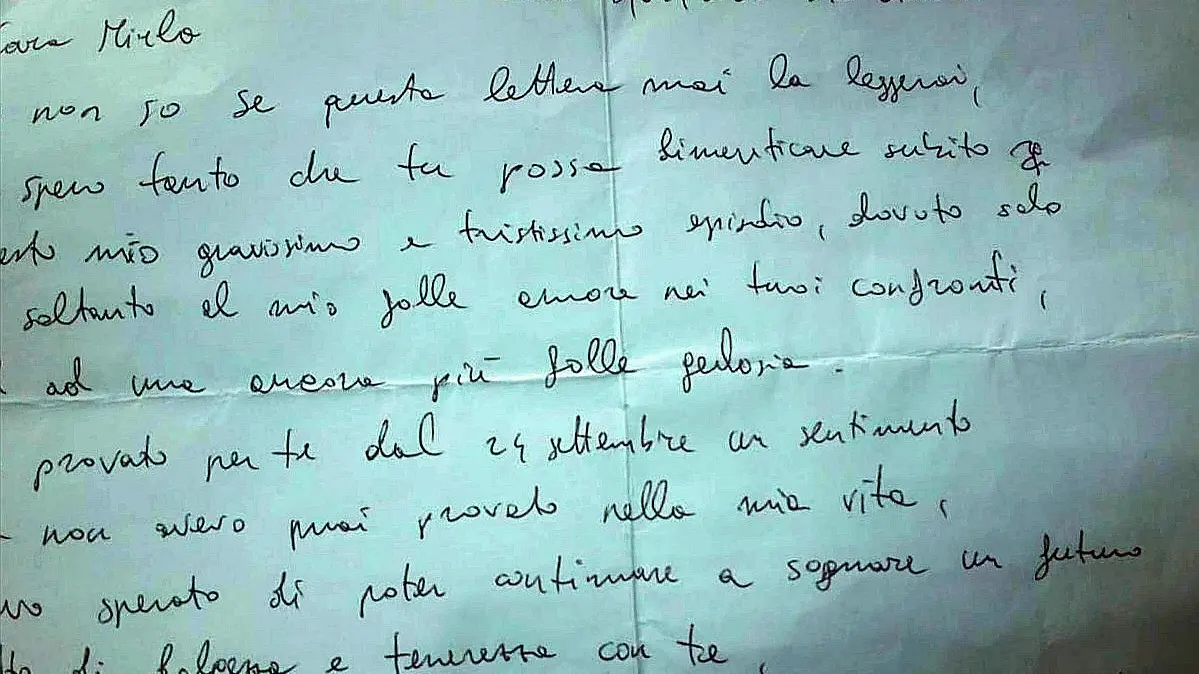 Cara Mirla
non so se questa lettera mai la leggerai,
spero tanto che tu possa dimenticare subito
esto mio gravissimo e tristissimo episodio, dovuto solo
soltanto al mio folle amore nei tuoi confronti,
ad una ancora più folle gelosia.
provato per te dal 24 settembre un sentimento
non avevo mai provato nella mia vita,
vo sperato di poter continuare a sognare un futuro
di e tenerezza con te,